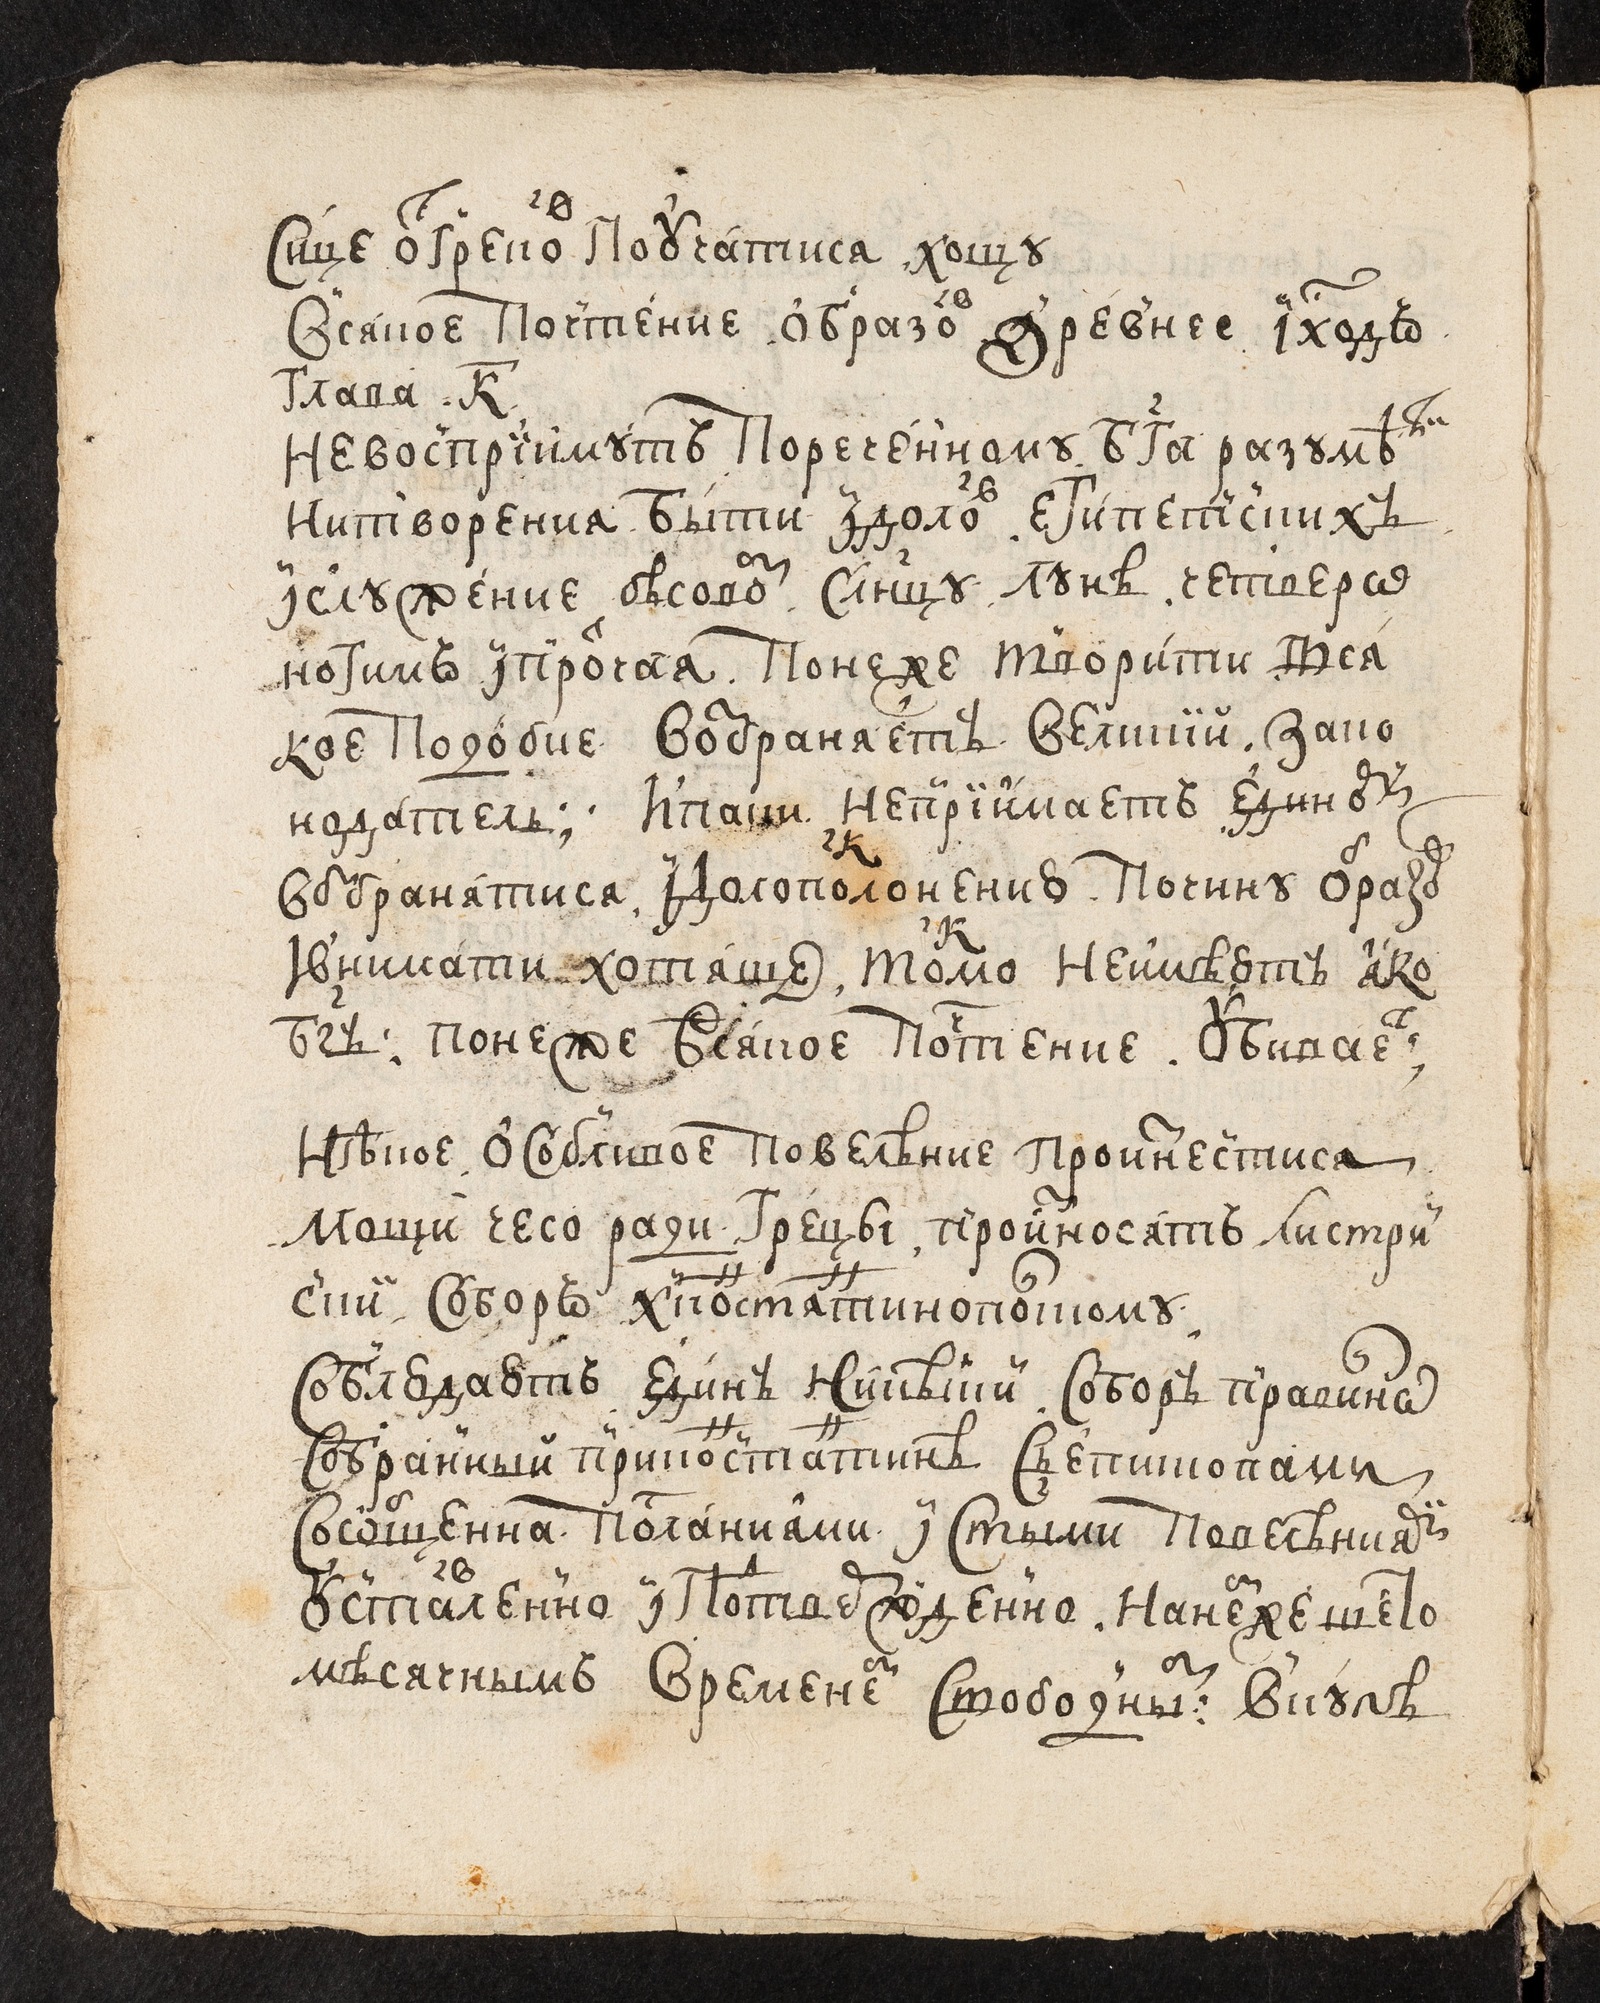 Сице ѿ грекоⷡ҇ Поꙋчатися хощꙋ
Всякое Почтение образоⷡ҇ Древнее Iсходѡ
Глава К҃
Невосприимꙋтъ Пореченному Бг҃а разꙋмѣⷮи
Нитворения Быти Iдолоⷡ҇ египетскихъ
Iслꙋжение бѣсовоⷨ Слн҃цꙋ Лꙋнѣ четверѡ
ногимъ Iпрочая Понеже творити Вся
кое Подобие Возбраняетъ Великий Зако
нодатель: Ипаки неприимаетъ единꙋю
Возбранятися Iдолоклонению Почину образоⷡ
Iвнимати хотяще, токмо неимѣютъ яко
Бг҃ъ: понеже Всякое Почтение Ꙋбивает:
Нѣкое Особливое Повелѣние Произнестися
мощи чесо ради Грецы произносятъ листри
ский Соборѡ Константинопоскому
Соблюдаютъ единъ Никѣйский Соборъ правилнѡ
Собранный приКостантинѣ Съ епископами
Со сообщенна Посланиями I Ст҃ыми Повелѣниями
Ꙋставленно I Потвержденно Нанемже шего
мѣсячнымъ Временеⷨ Свободныⷨ: Вкꙋпѣ